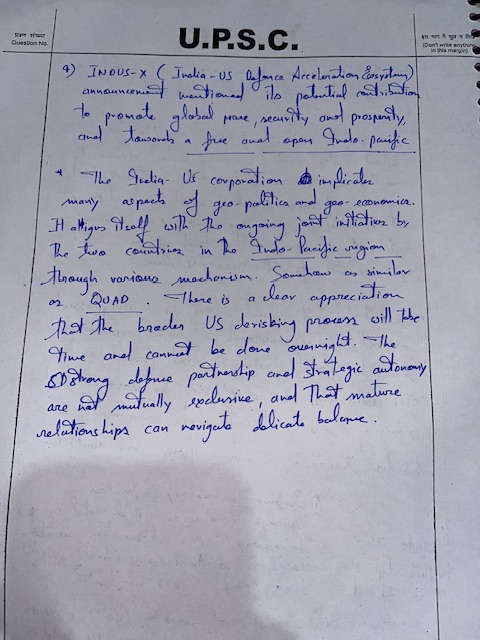 प्रश्न संख्या
Question No.
U.P.S.C.
इस भाग में कुछ न लिखें
(Don't write anything
in this margin)
4) INDUS-X ( India-US Defence Acceleration Ecosystem)
announcement mentioned its potential contribution
to promote global peace, security and prosperity,
and towards a free and open Indo-pacific
* The India-US corporation implicates
many aspects of geo-politics and geo-economics.
It aligns itself with the ongoing joint initiatives by
the two countries in the Indo-Pacific region
through various mechanism. Somehow as similar
as QUAD. There is a clear appreciation
that the broader US derisking process will take
time and cannot be done overnight. The
strong defence partnership and strategic autonomy
are not mutually exclusive, and that mature
relationships can navigate delicate balance.